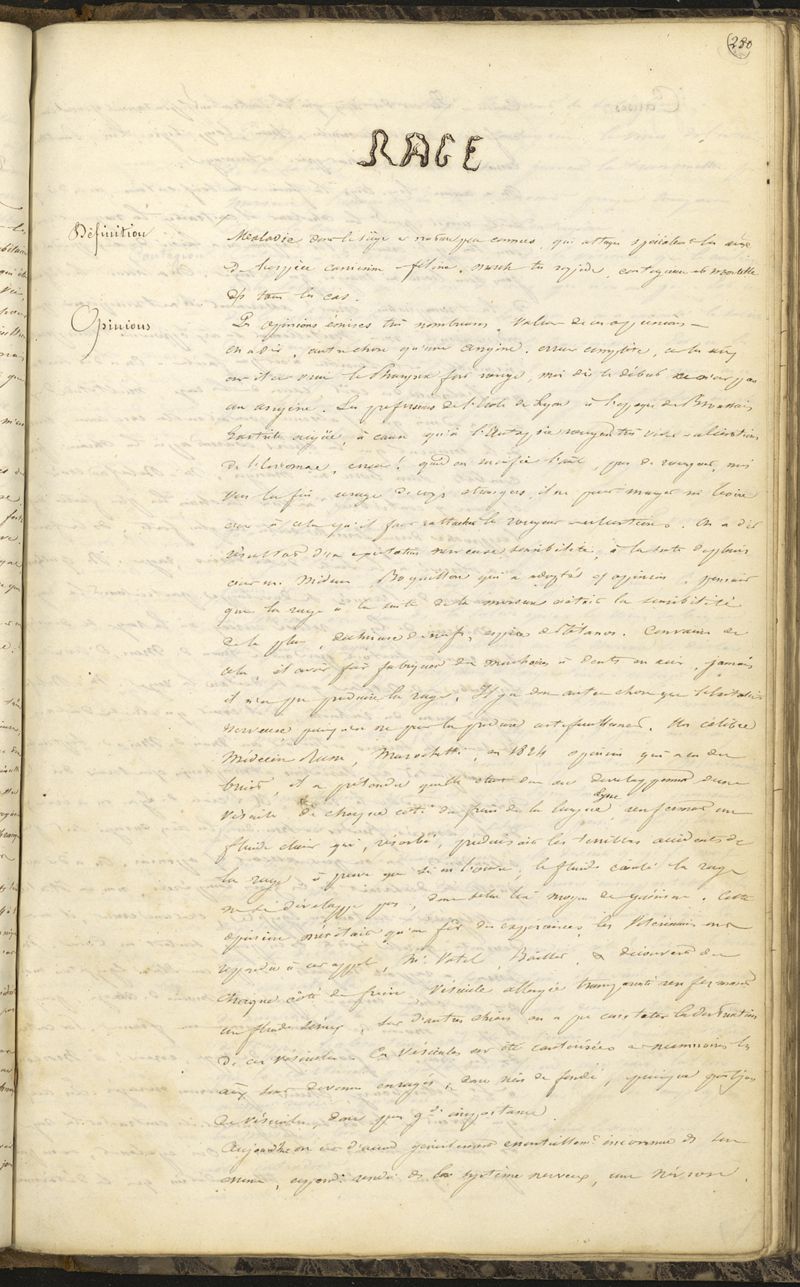 280
RAGE
Définition
Maladie dont le siège et nature peu connues, qui attaque spécialent les aux
de l'espèce canine féline, marche très rapide, contagieuse et mortelle
ds tous les cas.
Opinions
Les opinions émises très nombreuses. Valeur de ces opinions
On a dit, autre chose qu'une angine. erreur complète, ce les aux
on il est vrai le Pharynx fort rouge, mais dès le début ce n'est pas
un angine. Les professeurs de l'école de Lyon à l'époque de Broussais
Gastrite aigüe, à cause qu'à l'autopsie rougeur très vive ulcérations
de l'estomac, erreur! quand on sacrifie l'anl, pas de rougeur, mais
vers la fin, usage de corps étrangers, il ne peut manger ni boire
c'est à cela qu'il faut rattacher la rougeur ulcérations. On a dit
résultat d'une excitation nerveuse sensibilité, à la suite de plaies
Médecin Bosquillon qui a adopté cet opinion, pensait
que la rage à la suite de la morsure c'était la sensibilité
de la plaie, déchirure de nerfs, espèce de Tétanos. Convaincu de
cela il avait fait fabriquer des machoires à dents en acier, jamais
il n'a pu produire la rage. Il y a donc autre chose que l'excitation
nerveuse puisqu'on ne peut la produire artificiellement. Un célèbre
Médecin Russe, Marochetti, en 1824 opinion qui a eu du
bruit, il a prétendu qu'elle était due au développement d'une
vésicule de chaque côté du frein de la langue, lysse renfermant un
fluide clair qui, résorbé, produisait les terribles accidents de
la rage à preuve que si on l'ouvre, le fluide écoulé la rage
ne se développe pas, donc selon lui moyen de guérison. Cette
opinion méritait qu'on fit des expériences, les Vétérinaires ont
répondu à cet appel, Mr Vatel, Barthel, & découvert de
chaque côté du frein, vésicule allongée transparente renfermant
un fluide séreux, sur d'autres chiens on a pu constater la destruction
de ces vésicules. Ces vésicules ont été cautérisées et néanmoins les
aux sont devenus enragés, donc rien de fondé, quoique
de vésicules, donc pas gde importance.
Aujourdhui on est d'accord généralement essentiellemt inconnue ds son
essence, ayant ds le système nerveux, une névrose.